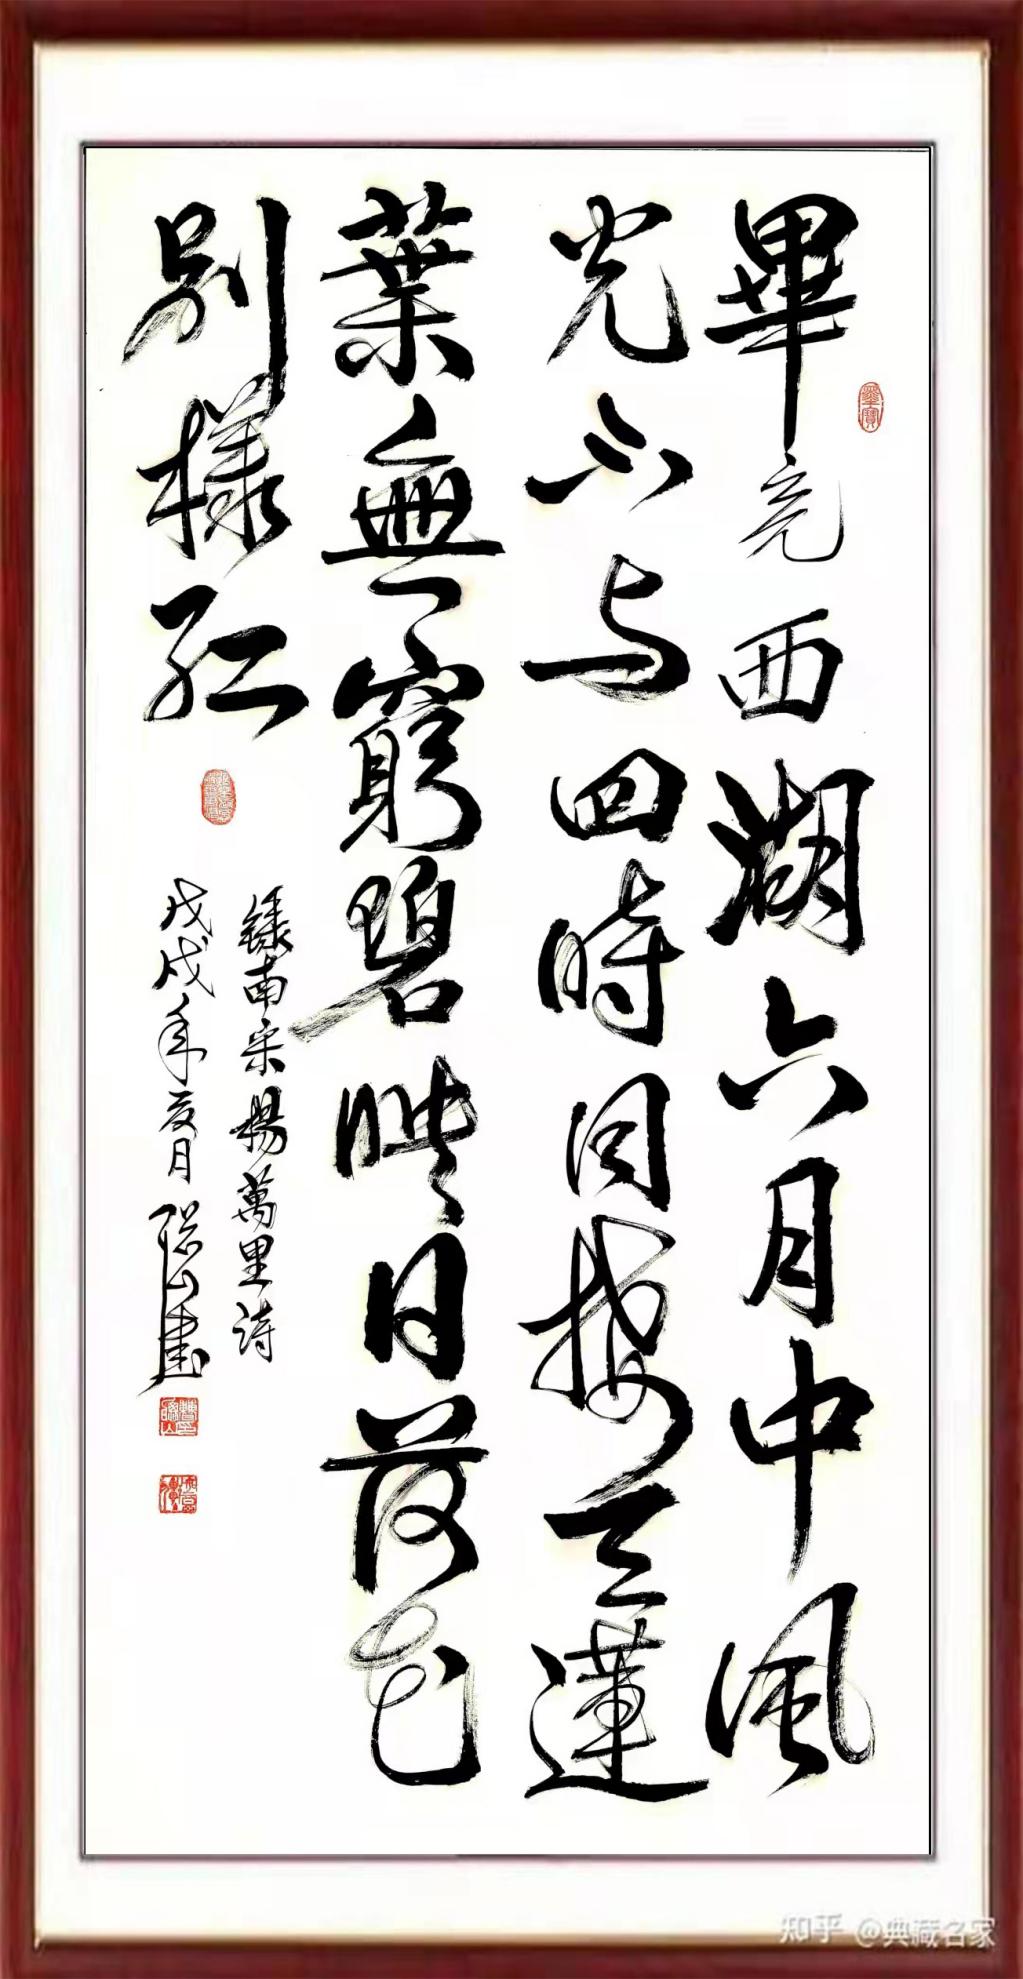 畢竟西湖六月中風
光不与四時同接天蓮
葉無窮碧映日荷花
別樣紅
錄南宋楊萬里詩
戊戌年夏月聪山書
知乎 @典藏名家